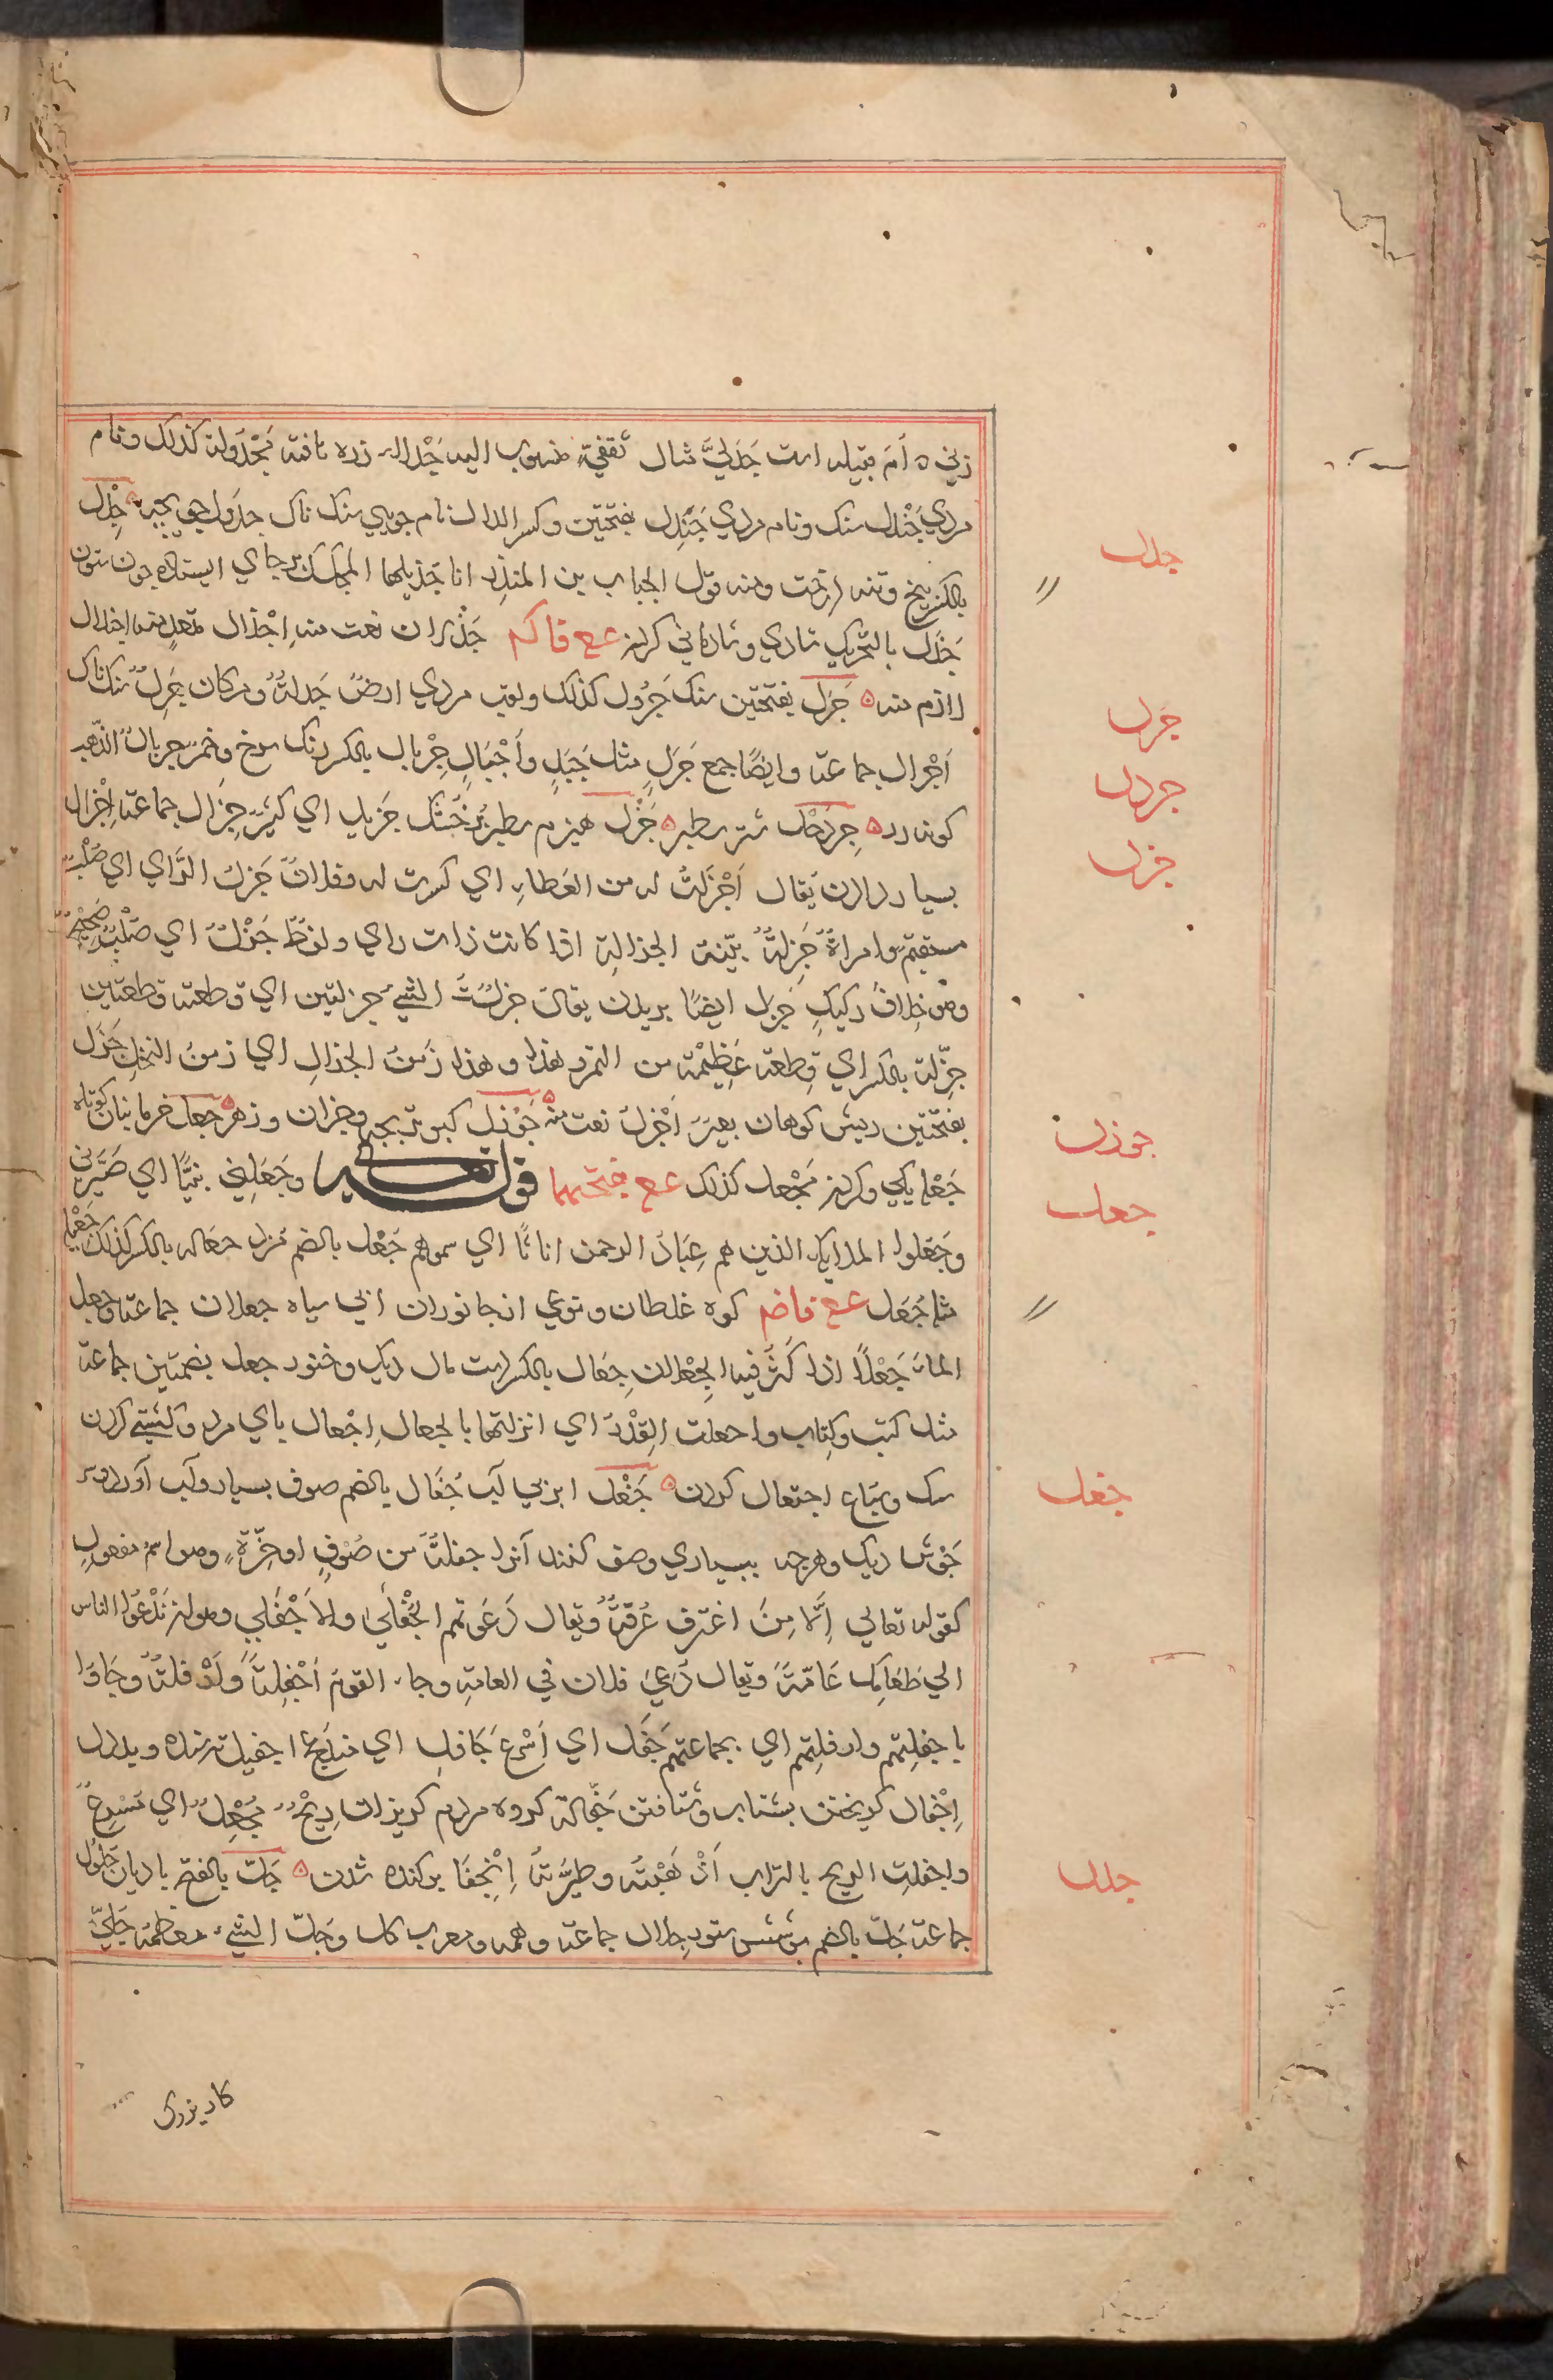 زنی ه اَمَ قبیله است جَدَلیَّ مثال ثقفیَّ منسوب الیه جَدْلاء زره بافته مَجْدَولة کذلک و نام
مردی جَنْدل سنک و نام مردی جَنَدِل بفتحتین و کسر الدال نام جویی سنک ناک جدَول جوی جِذْل
بالکسر بیخ و تنه درخت و منه قول الحباب بن المنذر انا جذیلها المحکک بر جای ایستاده چون ستون
جَذَل بالتحریک شادی و شادمانی کردن عـع فاکم جَذْلان نعت منه اِجْذال متعدٍ منه اجذلال
لازم منه ه جَرَل بفتحتین سنک جَرْوَل کذلک و لقب مردی ارضٌ جَرلةٌ و مکان جَرِلٌ سنک ناک
اَجْرال جماعة و ایضًا جمع جَرَلٍ مثل جَبَلٍ و اَجْبَالٍ جِرْیال بالکسر رنک سرخ و خمر جریالُ الذهب
کونه زر ه جِرْدَحْل شتر سطبر ه جَزْل هیزم سطبر خشک جَزیل ای کثیر جِزال جماعة اِجْزال
بسیار دادن یُقال اَجْزَلتُ له من العَطاءِ ای کثرت له و فلانٌ جَزلُ الرَّای ای صُلْب
مستقیم و امراةٌ جَزِلةٌ بیّنة الجزالةِ اذا کانت ذات رای و لفظٌ جَزْلٌ ای صُلْبٌ صَحِیْحٌ
و هو خِلافُ رکیکٍ جَزل ایضًا بریدن یقال جزلتُ الشیءَ جزلتین ای قطعته قطعتین
جِزْلة بالکسر ای قِطعة عَظِیْمة من التمر و هذا زَمنُ الجزالِ ای زمنُ النخل جَزَل
بفتحتین ریش کوهان بعیرٌ اَجْزلُ نعت منه ه جَوْزَل کبوتر بچه و جزان و زهر ه جعل خرما بنان کوتاه
جَعْل یکی و کردن مَجْعل کذلک عـع بفتحهما قوله تعالی و جَعَلنی نبیًّا ای صَیَّرنی
و جَعَلوا الملائکة الذین هم عِبَادُ الرحمن اناثًا ای سموهم جُعْل بالضم مزد جعاله بالکسر کذلک جَعْیله
مثلها جُعَل عـع فاضم کوه غلطان و نوعی از جانوران ابی سیاه جعلان جماعة و جعل
الماءُ جَعْلاً اذا کَثُر فیه الجِعْلان جِعَال بالکسر دست مال دیک و خنور جعل بضمتین جماعة
مثل کتب و کِتاب و اجعلت القِدْرَ ای انزلتها بالجعال اِجْعال پای مرد و کشنی کردن
سک و سَبَاع اجتعال کردن ه جَفْل ابر بی آب جُفَال بالضم صوف بسیار و آب آورد و سر
جَوش دیک و هرچه ببسیاری وصف کنند آنرا جفلةٌ من صُوْفٍ او جُزّةٍ و هو اسم مفعولٍ
کقوله تعالی اِلَّا مَنِ اغترف غُرفةً و یقال دَعَوتهم الجَفْلَی و الاَجْفَلی و هو ان تَدْعُوَ الناس
الی طَعَامک عَامّةً و یقال دُعِیَ فلان فی العامةِ و جاء القوم اَجْفَلةً و اَزْفلةً و جَاؤا
باجفلتهم و ازفلتهم ای بجماعتهم جَفَل ای اَسْرَع جَافل ای منزعج اجفیل ترسنده و بددل
اِجْفال کریختن بشتاب و شتافتن جَفَّالة کروه مردم کریزان رِیحٌ مُجْفِلٌ ای مُسْرِعٌ
و اجفلت الریح بالتراب اَذْهَبَتْه و طیَّرته اِنْجِفَا پرکنده شدن ه جَلّ بالفتح بادبان جُلوْل
جماعة جُلّ بالضم پوشش ستور جلال جماعة و همه و معرب کل و جُلّ الشیء معظمه جُلِّیّ
جدل
جرل
جردل
جزل
جوزل
جعل
جفل
جلل
کار بزرک